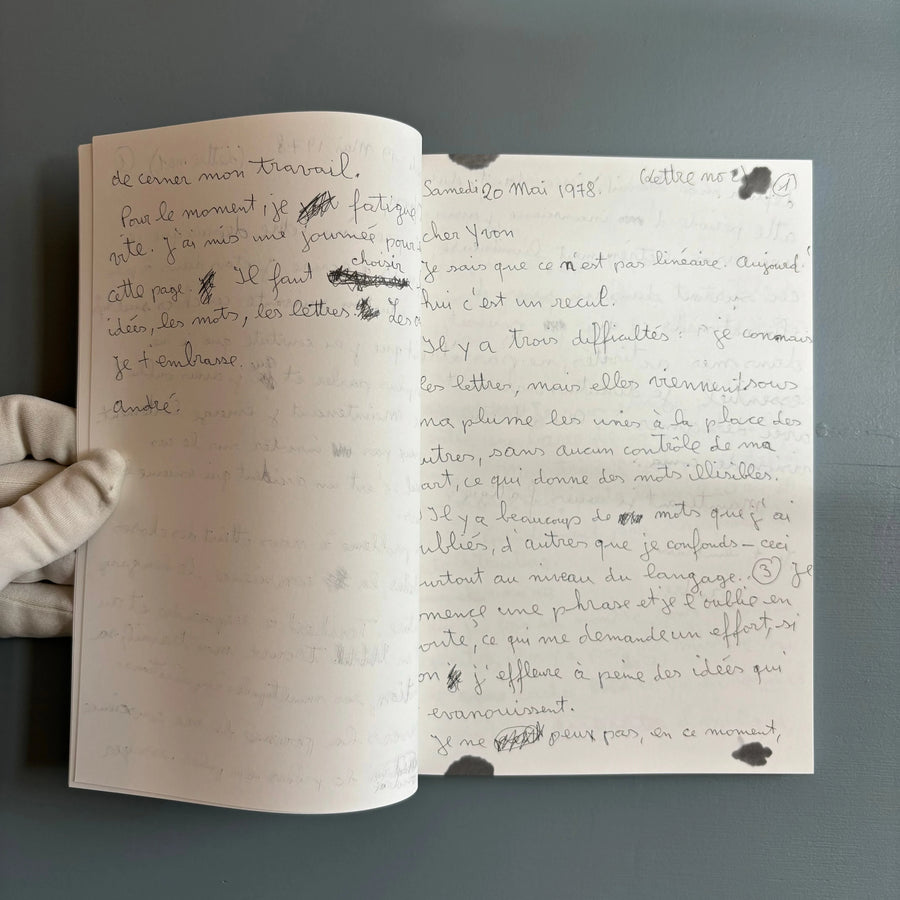 de cerner mon travail.
Pour le moment, je fatigue
vite. j'ai mis une journée pour
choisir
cette page. Il faut
idées, les mots, les lettres. Les
je t'embrasse.
andré.
Samedi 20 Mai 1978. (Lettre no 2) 1
cher Yvon
Je sais que ce n'est pas linéaire. Aujourd'
hui c'est un recul.
Il y a trois difficultés : je connais
les lettres, mais elles viennent sous
ma plume les unes à la place des
utres, sans aucun contrôle de ma
art, ce qui donne des mots illisibles.
Il y a beaucoup de mots que j'ai
ubliés, d'autres que je confonds – ceci
urtout au niveau du langage. ③ Je
mence une phrase et je l'oublie en
oute, ce qui me demande un effort, si
on j'effleure à peine des idées qui
evanouissent.
Je ne peux pas, en ce moment,